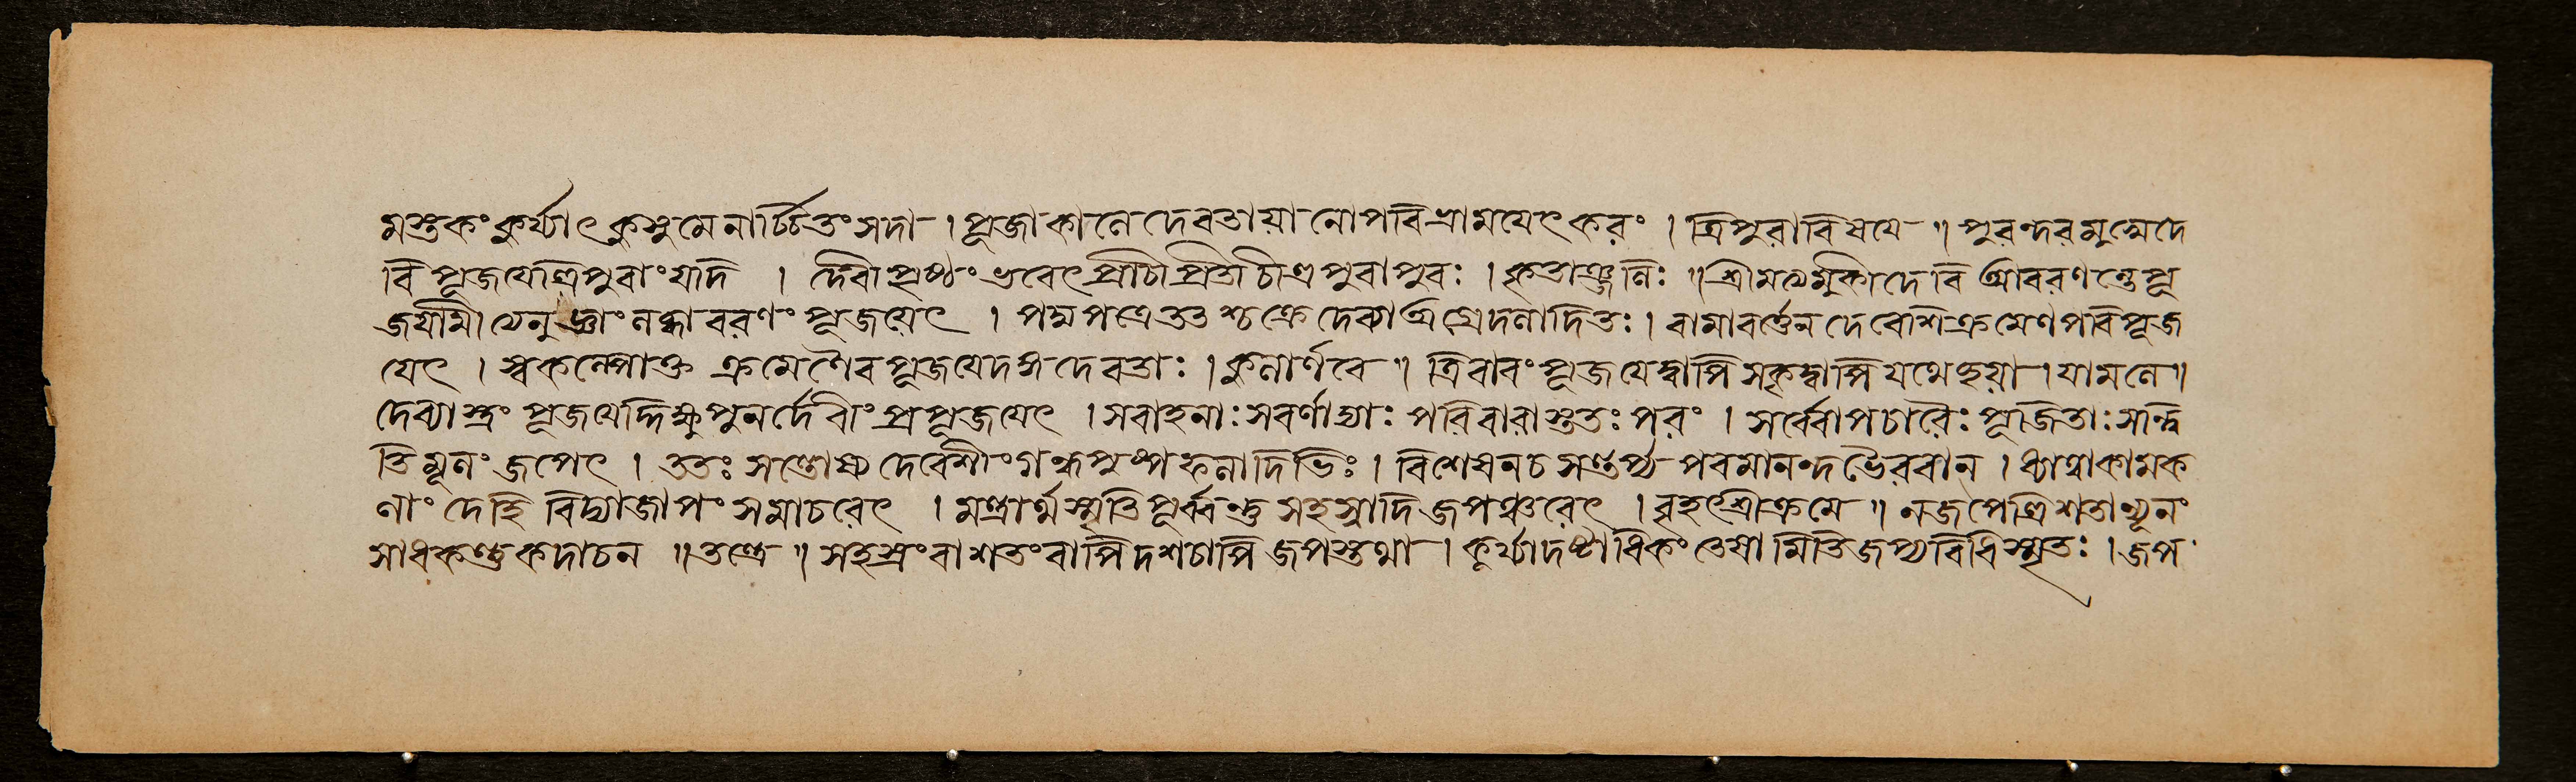 মস্তকং কুর্য্যাৎ কুসুমেনার্চ্চিতং সদা । পূজাকালে দেবতায়া নোপরি ভ্রাময়েৎ করং । ত্রিপুরাবিষয়ে ॥ পুরন্দরমুখে দে
বি পূজয়েত্রিপুরাং যদি । দেবীপৃষ্ঠং ভবেৎ প্রাচী প্রতীচী ত্রিপুরাপুরঃ । কৃতাঞ্জলিঃ ॥ শ্রীমথেমুকী দেবি আবরণন্তে পূ
জয়ামী থেনুজ্ঞাং লব্ধাবরণং পূজয়েৎ । পদ্মপত্রে ততশ্চক্রে দেব্যা অগ্রেদলাদিতঃ । বামাবর্ত্তেন দেবেশি ক্রমেণ পরিপূজ
য়েৎ । স্বকল্পোক্তক্রমেণৈব পূজয়েদঙ্গদেবতাঃ । কুলার্ণবে ॥ ত্রিবারং পূজয়েদ্বাপি সকৃদ্বাপি যথেচ্ছয়া । যামলে ॥
দেব্যাস্ত্রং পূজয়েদ্দিক্ষু পুনর্দেবীং প্রপূজয়েৎ । সবাহনাঃ সবর্ণাদ্যাঃ পরিবারাস্ততঃ পরং । সর্ব্বোপচারৈঃ পূজিতাঃ সন্ত্বি
তি মূলং জপেৎ । ততঃ সন্তোষ্য দেবেশীং গন্ধপুষ্পফলাদিভিঃ । বিশেষেনচ সন্তর্প্য পরমানন্দভৈরবান । ধ্যাত্বাকামক
লাং দেহি বিদ্যাজাপং সমাচরেৎ । মন্ত্রার্থস্মৃতিপূর্ব্বন্তু সহস্রাদি জপঞ্চরেৎ । বৃহৎশ্রীক্রমে ॥ ন জপেত্রিশতান্ন্যূনং
সাধকন্তু কদাচন ॥ তন্ত্রে ॥ সহস্রং বা শতং বাপি দশচাপি জপস্তথা । কুর্য্যাদষ্টাধিকং জ্ঞেয়ামিতি জপ্যবিধি স্মৃতঃ । জপ